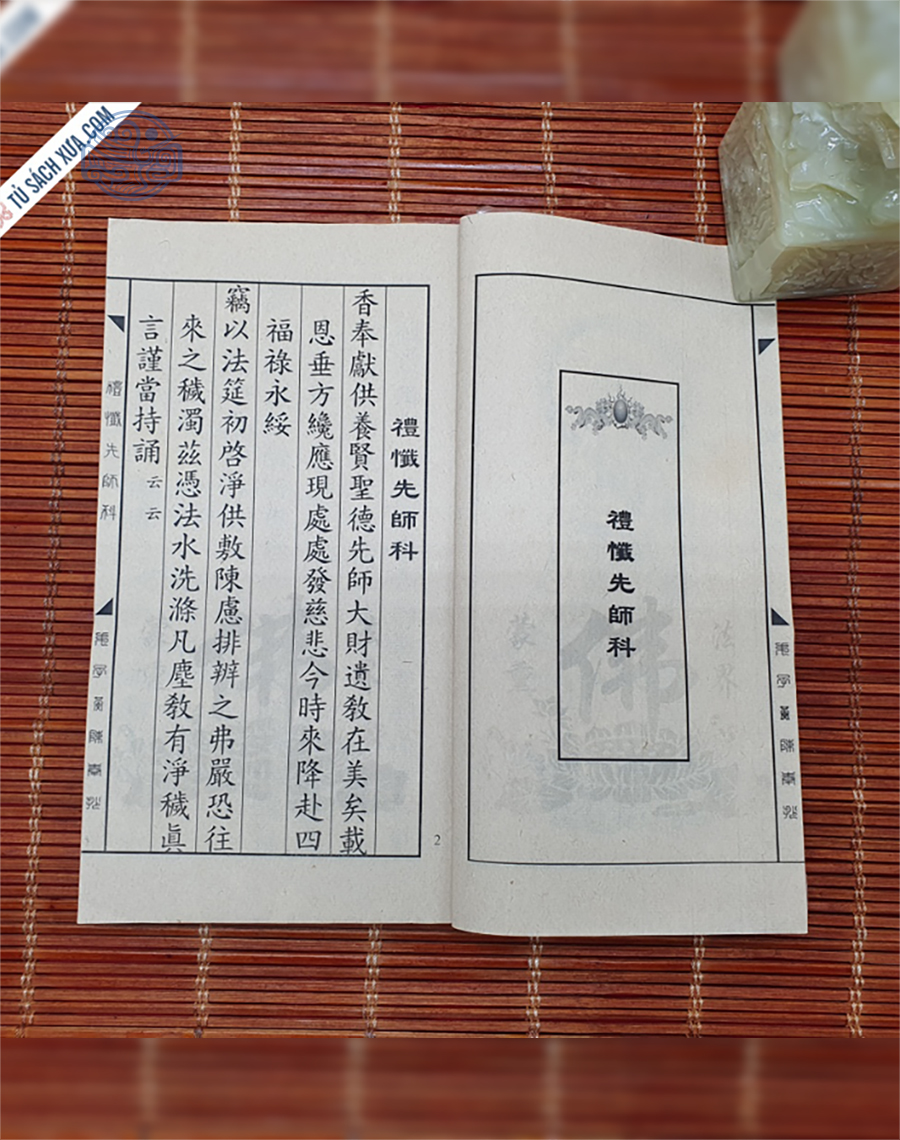 TỦ SÁCH XƯA.COM
禮懺先師科
禮懺先師科
香奉獻供養賢聖德先師大財遺教在美矣載
恩垂方纔應現處處發慈悲今時來降赴四
福祿永綏
竊以法筵初啓淨供敷陳慮排辦之弗嚴恐往
來之穢濁茲憑法水洗滌凡塵教有淨穢眞
言謹當持誦云云
禮懺先師科
2
佛